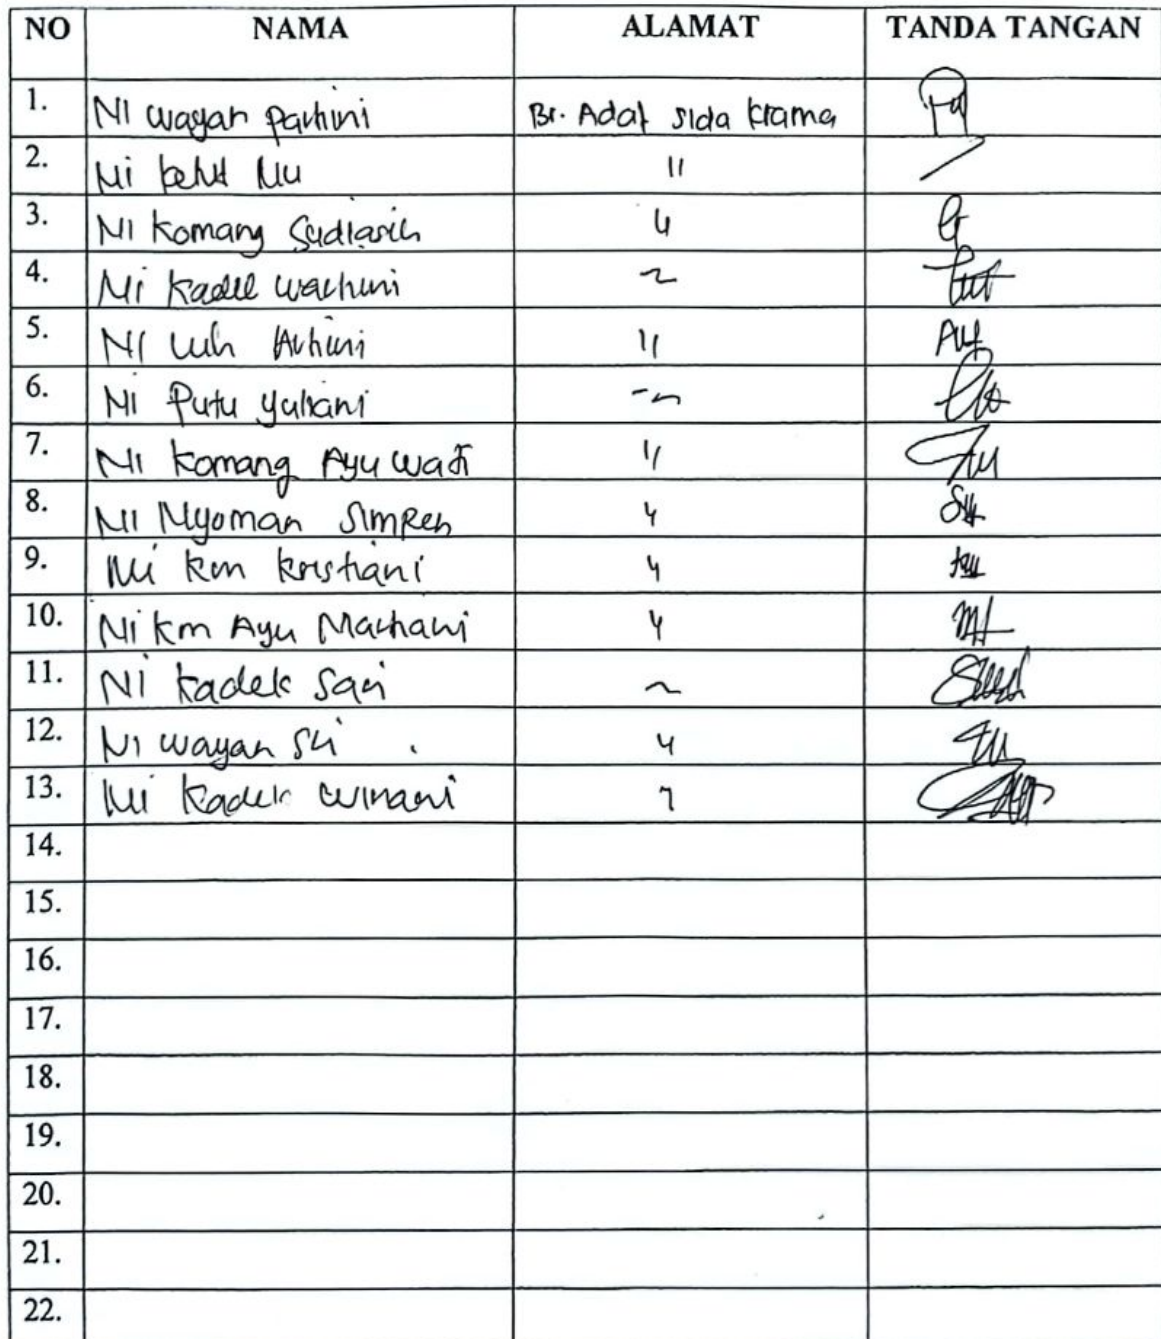 NO NAMA ALAMAT TANDA TANGAN
1. Ni wayan partini Br. Adat sida krama
2. Ni ketut "
3. Ni Komang Sudiasih "
4. Ni Kadek wartini "
5. Ni Luh Artini "
6. Ni Putu yuliani "
7. Ni Komang Ayu wati "
8. Ni Nyoman Simpen "
9. Ni Km kristiani "
10. Ni Km Ayu Martiani "
11. Ni Kadek Sari "
12. Ni wayan Sri "
13. Ni Kadek winani "
14.
15.
16.
17.
18.
19.
20.
21.
22.